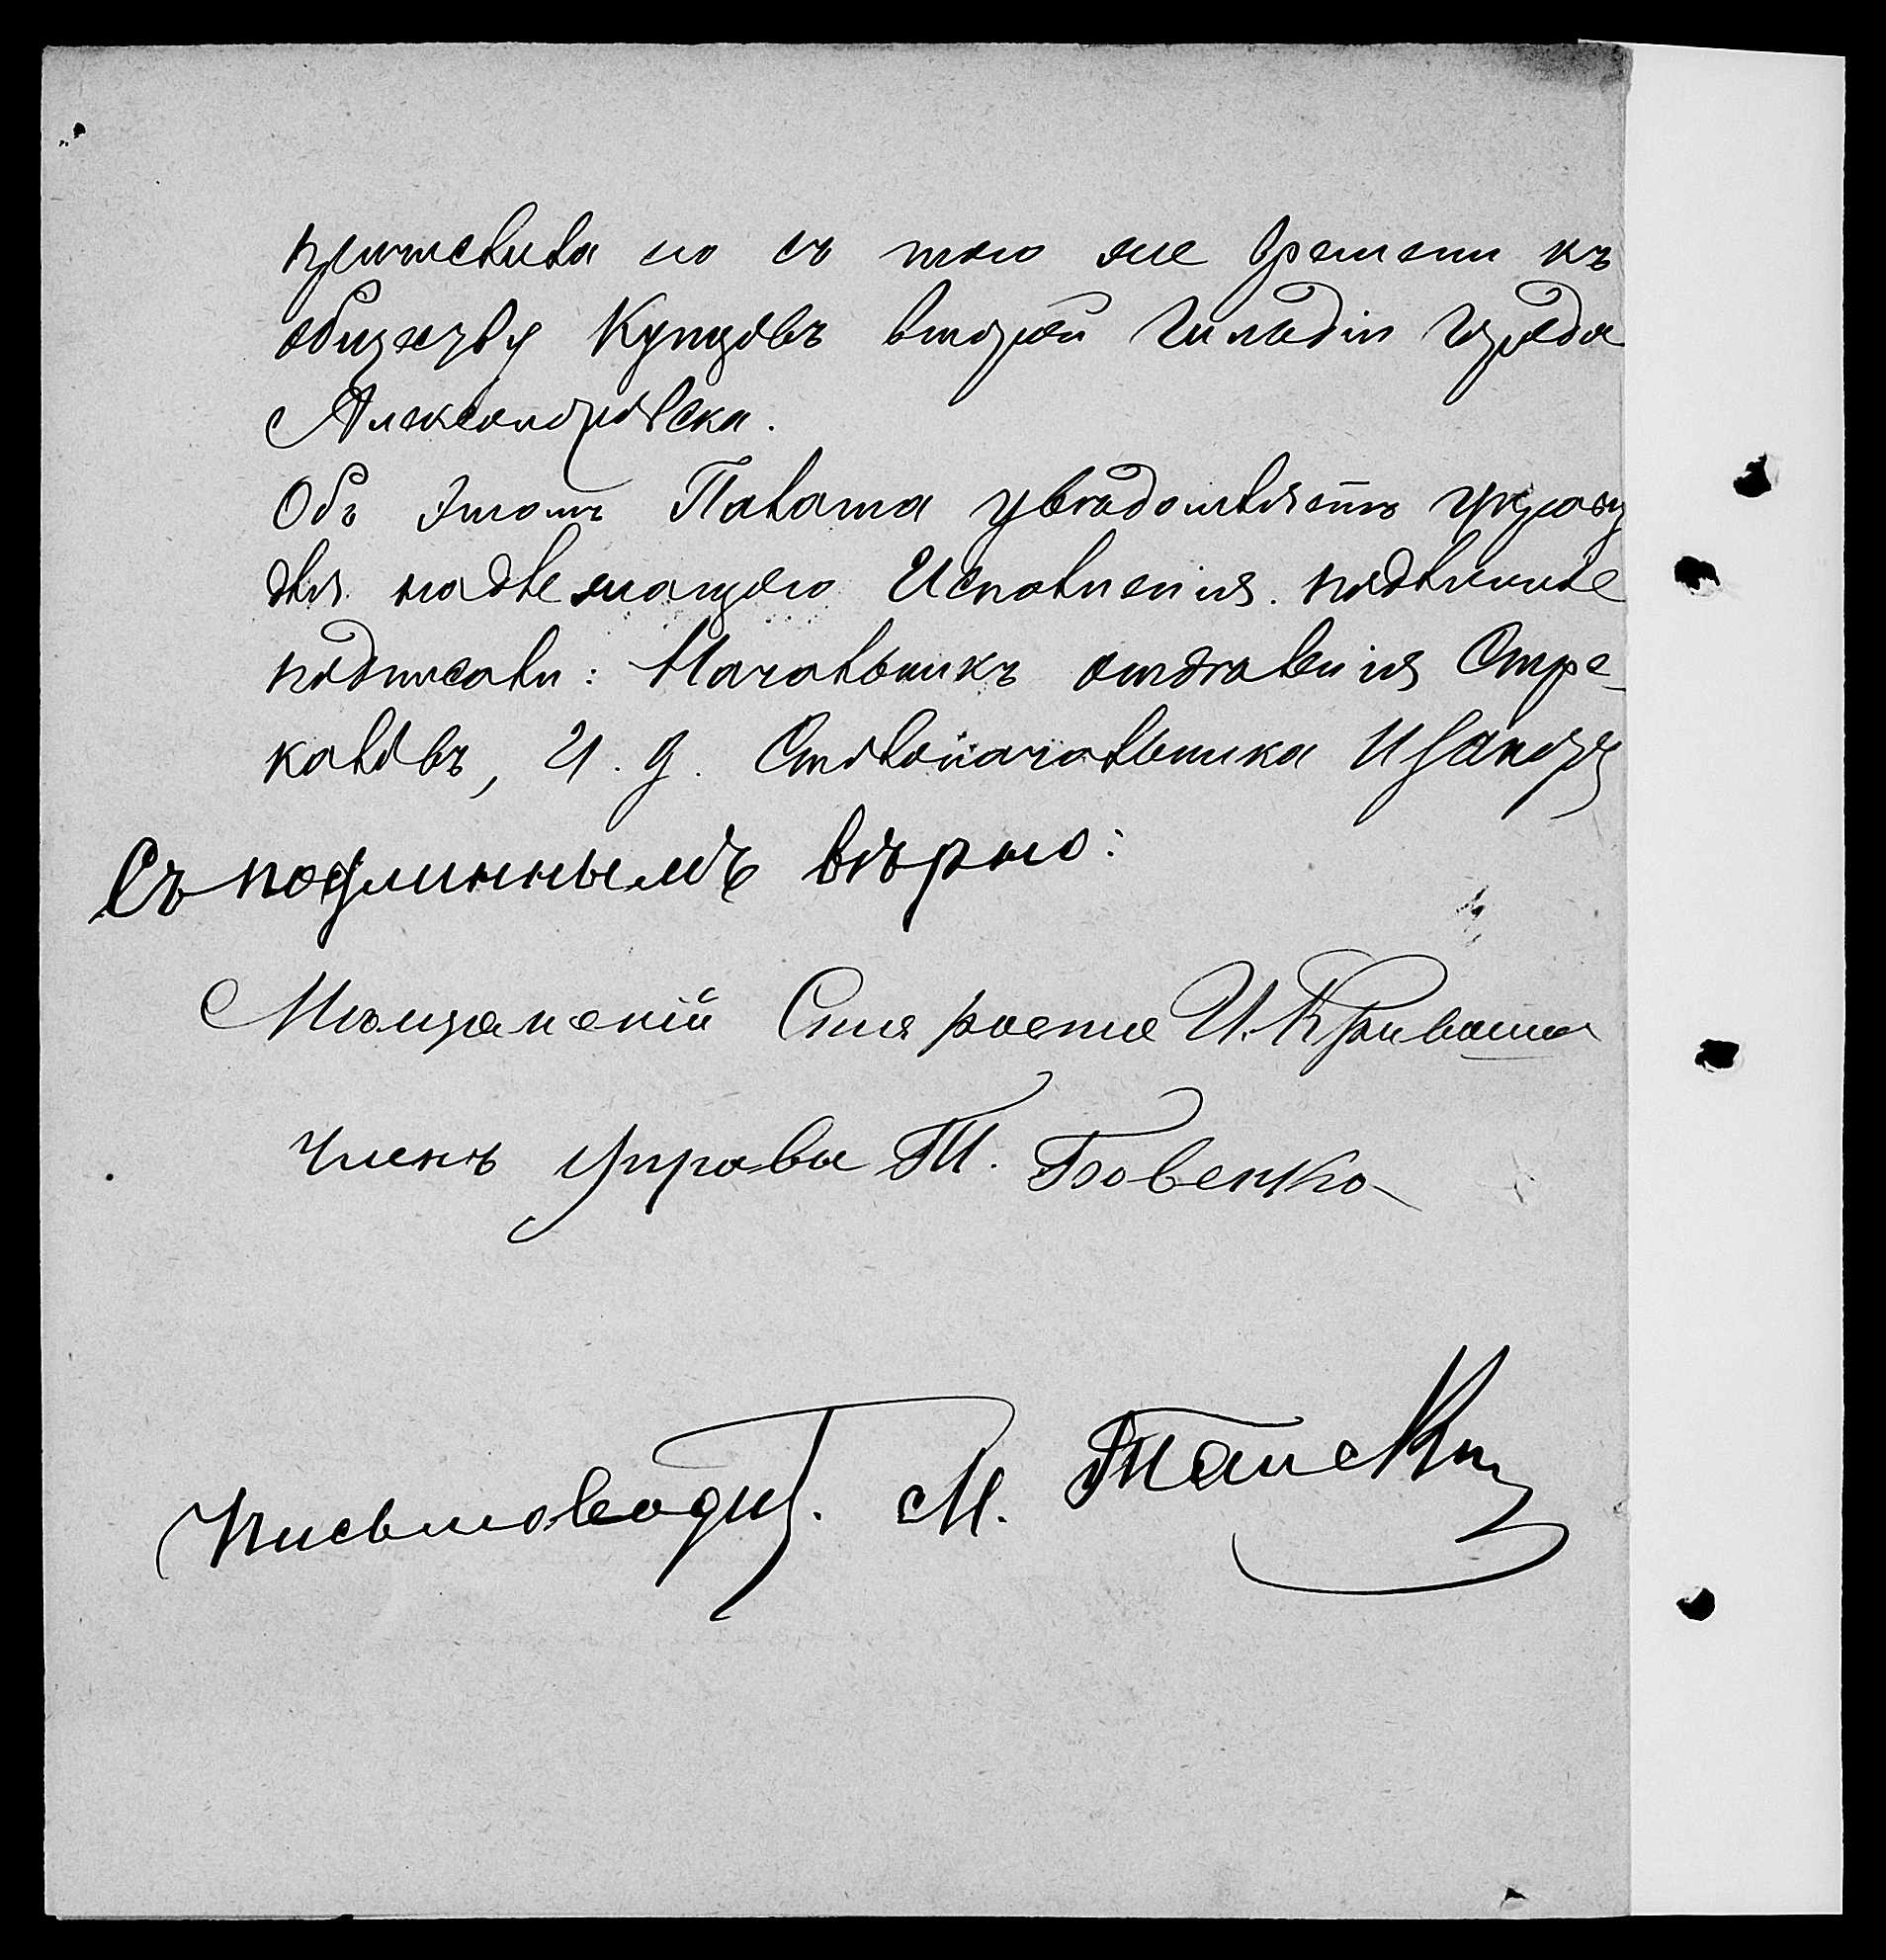 причислила его съ того же времени къ
обществу Купцовъ второй Гильдіи города
Александровска.
Объ этомъ Палата увѣдомляетъ Управу
для надлежащаго Исполненія. подлинное
подписали: Начальникъ отдѣленія Стре-
каловъ, И. д. Столоначальника
Съ подлиннымъ вѣрно:
Мѣщанскій Староста И. Криваша
Членъ Управы Т. Бовенко
Письмоводит. М.